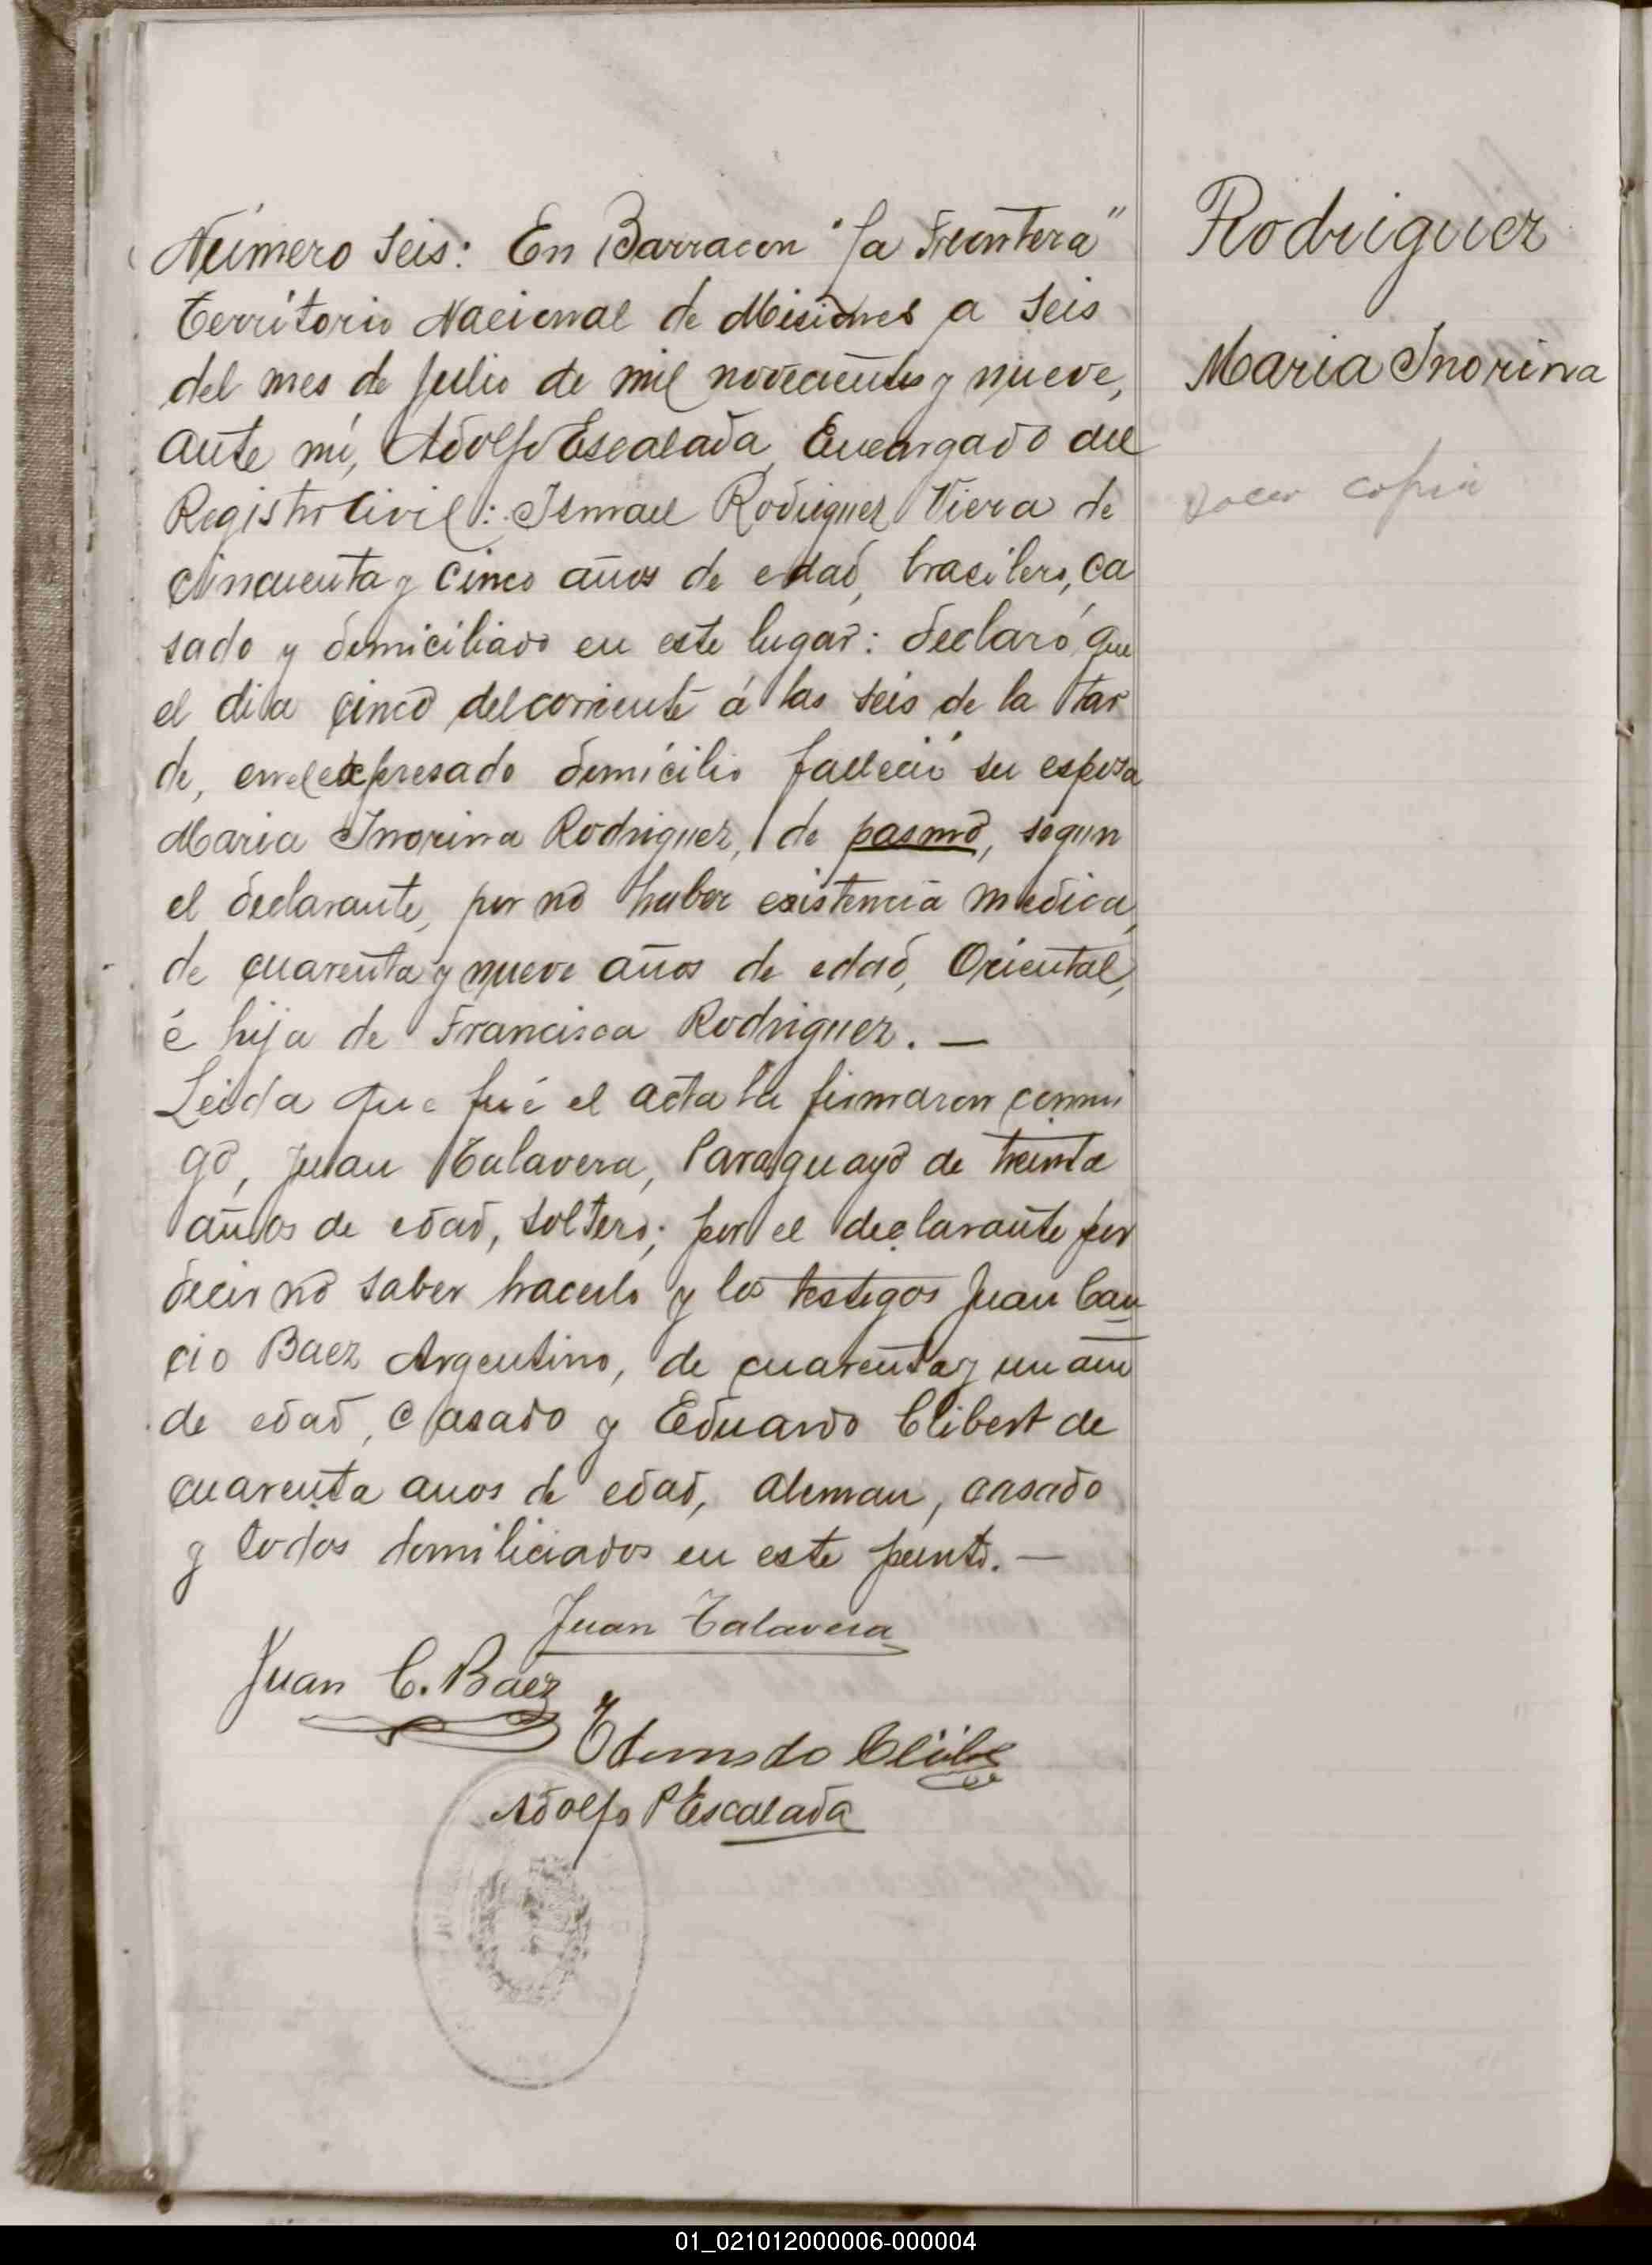 Número seis: En Barracon "La Frontera"
Territorio Nacional de Misiones a seis
del mes de Julio de mil novecientos y nueve,
ante mí, Adolfo Escalada, Encargado del
Registro Civil: Ismael Rodriguez Viera de
cincuenta y cinco años de edad, brasilero, ca
sado y domiciliado en este lugar: declaró que
el dia cinco del corriente á las seis de la tar
de, en el expresado domicilio falleció su esposa
Maria Inorina Rodriguez, de pasmo, segun
el declarante, por no haber existencia medica,
de cuarenta y nueve años de edad, Oriental,
é hija de Francisca Rodriguez. —
Leida que fué el acta la firmaron conmi
go, Juan Talavera, Paraguayo de treinta
años de edad, soltero; por el declarante por
decir no saber hacerlo y los testigos Juan Can
cio Baez Argentino, de cuarenta y un año
de edad, casado y Eduardo Clibert de
cuarenta anos de edad, aleman, casado
y todos domiliciados en este punto. —
Juan Talavera
Juan C. Baez
Adolfo P Escalada
Rodriguez
Maria Inorina
copia
01_021012000006-000004